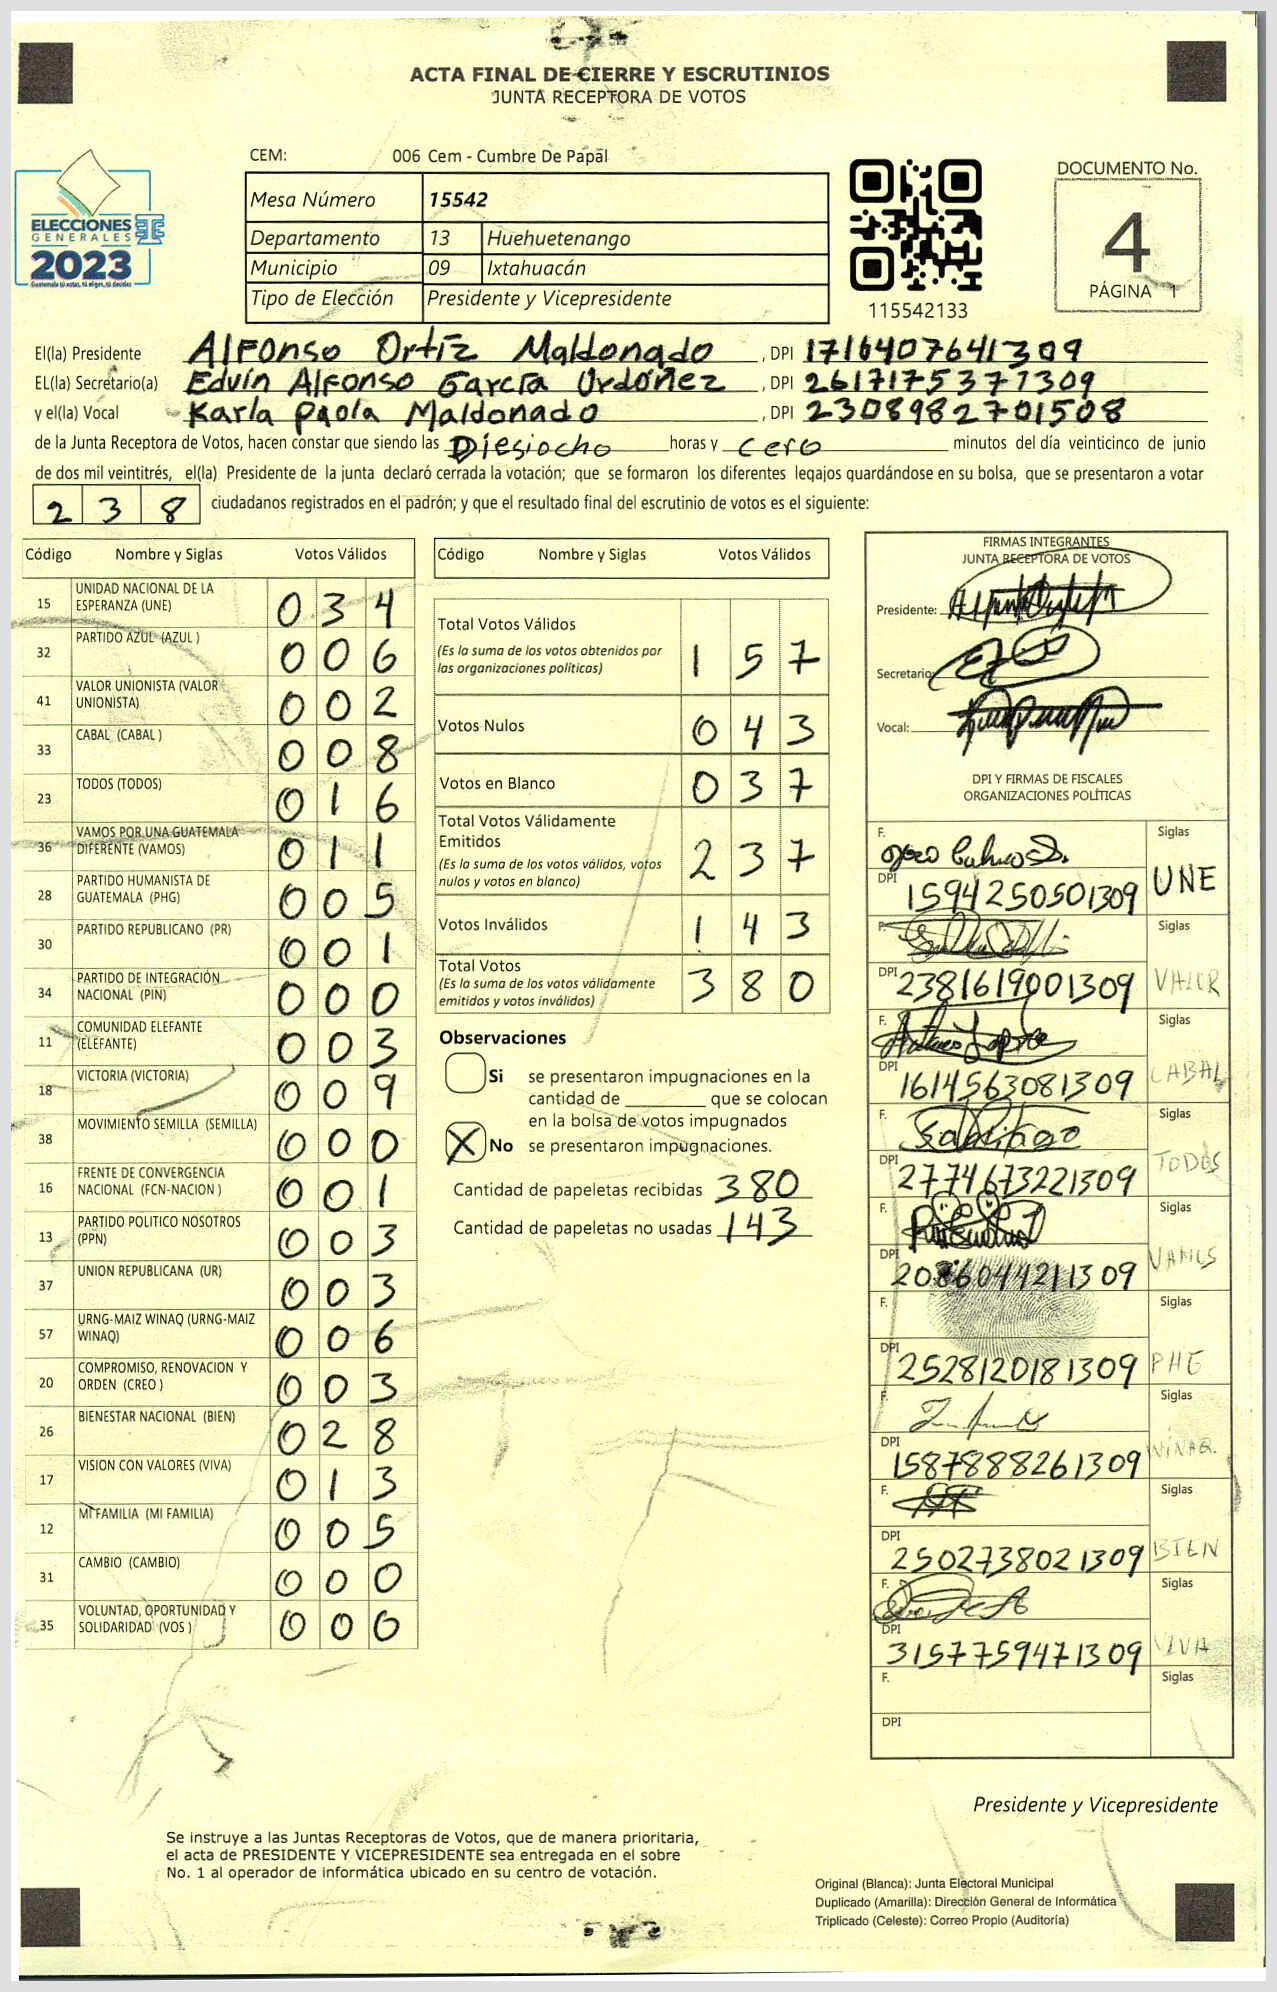 ACTA FINAL DE CIERRE Y ESCRUTINIOS
JUNTA RECEPTORA DE VOTOS
CEM: 006 Cem - Cumbre De Papal
ELECCIONES
GENERALES
2023
Guatemala tú votas, tú eliges, tú decides
Mesa Número 15542
Departamento 13 Huehuetenango
Municipio 09 Ixtahuacán
Tipo de Elección Presidente y Vicepresidente
115542133
DOCUMENTO No.
4
PÁGINA 1
El(la) Presidente Alfonso Ortíz Maldonado, DPI 1716407641309
EL(la) Secretario(a) Edvin Alfonso García Ordóñez, DPI 2617175371309
y el(la) Vocal Karla Paola Maldonado, DPI 2308982701508
de la Junta Receptora de Votos, hacen constar que siendo las Diesiocho horas y cero minutos del día veinticinco de junio
de dos mil veintitrés, el(la) Presidente de la junta declaró cerrada la votación; que se formaron los diferentes legajos guardándose en su bolsa, que se presentaron a votar
2 3 8 ciudadanos registrados en el padrón; y que el resultado final del escrutinio de votos es el siguiente:
Código Nombre y Siglas Votos Válidos
15 UNIDAD NACIONAL DE LA ESPERANZA (UNE) 0 3 4
32 PARTIDO AZUL (AZUL ) 0 0 6
41 VALOR UNIONISTA (VALOR UNIONISTA) 0 0 2
33 CABAL (CABAL ) 0 0 8
23 TODOS (TODOS) 0 1 6
36 VAMOS POR UNA GUATEMALA DIFERENTE (VAMOS) 0 1 1
28 PARTIDO HUMANISTA DE GUATEMALA (PHG) 0 0 5
30 PARTIDO REPUBLICANO (PR) 0 0 1
34 PARTIDO DE INTEGRACIÓN NACIONAL (PIN) 0 0 0
11 COMUNIDAD ELEFANTE (ELEFANTE) 0 0 3
18 VICTORIA (VICTORIA) 0 0 9
38 MOVIMIENTO SEMILLA (SEMILLA) 0 0 0
16 FRENTE DE CONVERGENCIA NACIONAL (FCN-NACION ) 0 0 1
13 PARTIDO POLITICO NOSOTROS (PPN) 0 0 3
37 UNION REPUBLICANA (UR) 0 0 3
57 URNG-MAIZ WINAQ (URNG-MAIZ WINAQ) 0 0 6
20 COMPROMISO, RENOVACION Y ORDEN (CREO ) 0 0 3
26 BIENESTAR NACIONAL (BIEN) 0 2 8
17 VISION CON VALORES (VIVA) 0 1 3
12 MI FAMILIA (MI FAMILIA) 0 0 5
31 CAMBIO (CAMBIO) 0 0 0
35 VOLUNTAD, OPORTUNIDAD Y SOLIDARIDAD (VOS ) 0 0 0
Código Nombre y Siglas Votos Válidos
Total Votos Válidos
(Es la suma de los votos obtenidos por las organizaciones políticas) 1 5 7
Votos Nulos 0 4 3
Votos en Blanco 0 3 7
Total Votos Válidamente Emitidos
(Es la suma de los votos válidos, votos nulos y votos en blanco) 2 3 7
Votos Inválidos 1 4 3
Total Votos
(Es la suma de los votos válidamente emitidos y votos inválidos) 3 8 0
Observaciones
Si se presentaron impugnaciones en la
cantidad de ________ que se colocan
en la bolsa de votos impugnados
X No se presentaron impugnaciones.
Cantidad de papeletas recibidas 380
Cantidad de papeletas no usadas 143
FIRMAS INTEGRANTES
JUNTA RECEPTORA DE VOTOS
Presidente:
Secretario:
Vocal:
DPI Y FIRMAS DE FISCALES
ORGANIZACIONES POLÍTICAS
F. Siglas
DPI 1594250501309 UNE
F. Siglas
DPI 2381619001309 VALOR
F. Siglas
DPI 1614563081309 CABAL
F. Siglas
DPI 2774673221309 TODOS
F. Siglas
DPI 2086044211309 VAMOS
F. Siglas
DPI 2528120181309 PHG
F. Siglas
DPI 1587888261309 WINAQ.
F. Siglas
DPI 2502738021309 BIEN
F. Siglas
DPI 3157759471309 VIVA
F. Siglas
DPI
Presidente y Vicepresidente
Se instruye a las Juntas Receptoras de Votos, que de manera prioritaria,
el acta de PRESIDENTE Y VICEPRESIDENTE sea entregada en el sobre
No. 1 al operador de informática ubicado en su centro de votación.
Original (Blanca): Junta Electoral Municipal
Duplicado (Amarilla): Dirección General de Informática
Triplicado (Celeste): Correo Propio (Auditoría)